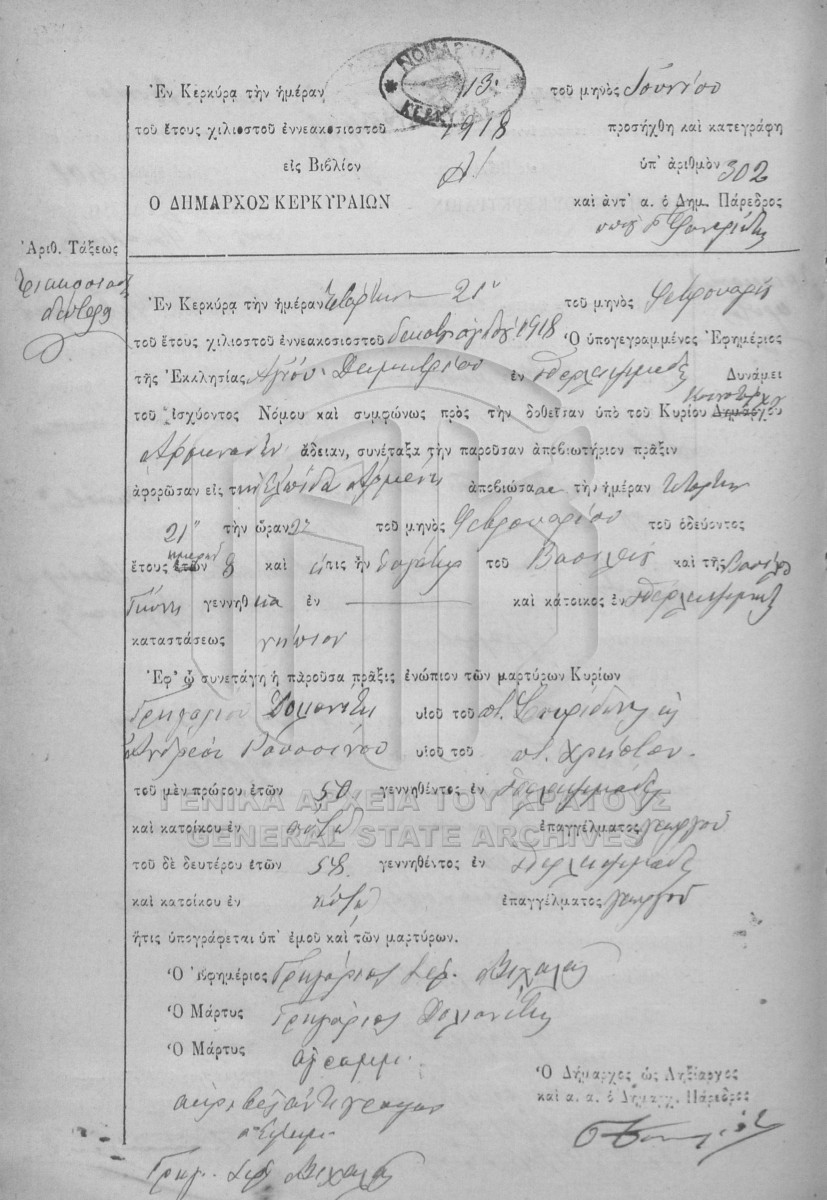 ΝΟΜΑΡΧΙΑ
ΚΕΡΚΥΡΑΣ
Ἐν Κερκύρᾳ τὴν ἡμέραν 13 τοῦ μηνὸς Ἰουνίου
τοῦ ἔτους χιλιοστοῦ ἐννεακοσιοστοῦ 1918 προσήχθη καὶ κατεγράφη
εἰς Βιβλίον Α' ὑπ' ἀριθμὸν 302
Ο ΔΗΜΑΡΧΟΣ ΚΕΡΚΥΡΑΙΩΝ καὶ ἀντ' α. ὁ Δημ. Πάρεδρος
Ἀριθ. Τάξεως
Ἐν Κερκύρᾳ τὴν ἡμέραν Τετάρτην 21 τοῦ μηνὸς Φεβρουαρίου
τοῦ ἔτους χιλιοστοῦ ἐννεακοσιοστοῦ δεκάτου ὀγδόου 1918 Ὁ ὑπογεγραμμένος Ἐφημέριος
τῆς Ἐκκλησίας Ἁγίου Δημητρίου ἐν Δυνάμει
τοῦ ἰσχύοντος Νόμου καὶ συμφώνως πρὸς τὴν δοθεῖσαν ὑπὸ τοῦ Κυρίου Δημάρχου
ἄδειαν, συνέταξα τὴν παροῦσαν ἀποβιωτήριον πρᾶξιν
ἀφορῶσαν εἰς τὴν Ἐλπίδα ἀποβιώσασαν τὴν ἡμέραν Τετάρτην
21 τὴν ὥραν τοῦ μηνὸς Φεβρουαρίου τοῦ ὁδεύοντος
ἔτους ἐτῶν ἡμερῶν 8 καὶ ἥτις ἦν θυγάτηρ τοῦ Βασιλείου καὶ τῆς
γεννηθεῖσα ἐν — καὶ κάτοικος ἐν
καταστάσεως νήπιον
Ἐφ' ᾧ συνετάγη ἡ παροῦσα πρᾶξις ἐνώπιον τῶν μαρτύρων Κυρίων
Γρηγορίου Δολιανίτη υἱοῦ τοῦ π. Σπυρίδωνος
Ἀνδρέου υἱοῦ τοῦ π. Χρήστου
τοῦ μὲν πρώτου ἐτῶν 50 γεννηθέντος ἐν
ΓΕΝΙΚΑ ΑΡΧΕΙΑ ΤΟΥ ΚΡΑΤΟΥΣ
καὶ κατοίκου ἐν αὐτῷ ἐπαγγέλματος γεωργοῦ
GENERAL STATE ARCHIVES
τοῦ δὲ δευτέρου ἐτῶν 58 γεννηθέντος ἐν
καὶ κατοίκου ἐν αὐτῷ ἐπαγγέλματος γεωργοῦ
ἥτις ὑπογράφεται ὑπ' ἐμοῦ καὶ τῶν μαρτύρων.
Ὁ Ἐφημέριος Γρηγόριος Ἱερ. Μιχαλᾶς
Ὁ Μάρτυς Γρηγόριος Δολιανίτης
Ὁ Μάρτυς ἀγράμμ.
Ὁ Δήμαρχος ὡς Ληξίαρχος
καὶ α. α. ὁ Δημαρχ. Πάρεδρος
ἀκριβὲς ἀντίγραφον
ὁ Ἐφημ.
Γρηγ. Ἱερ. Μιχαλᾶς